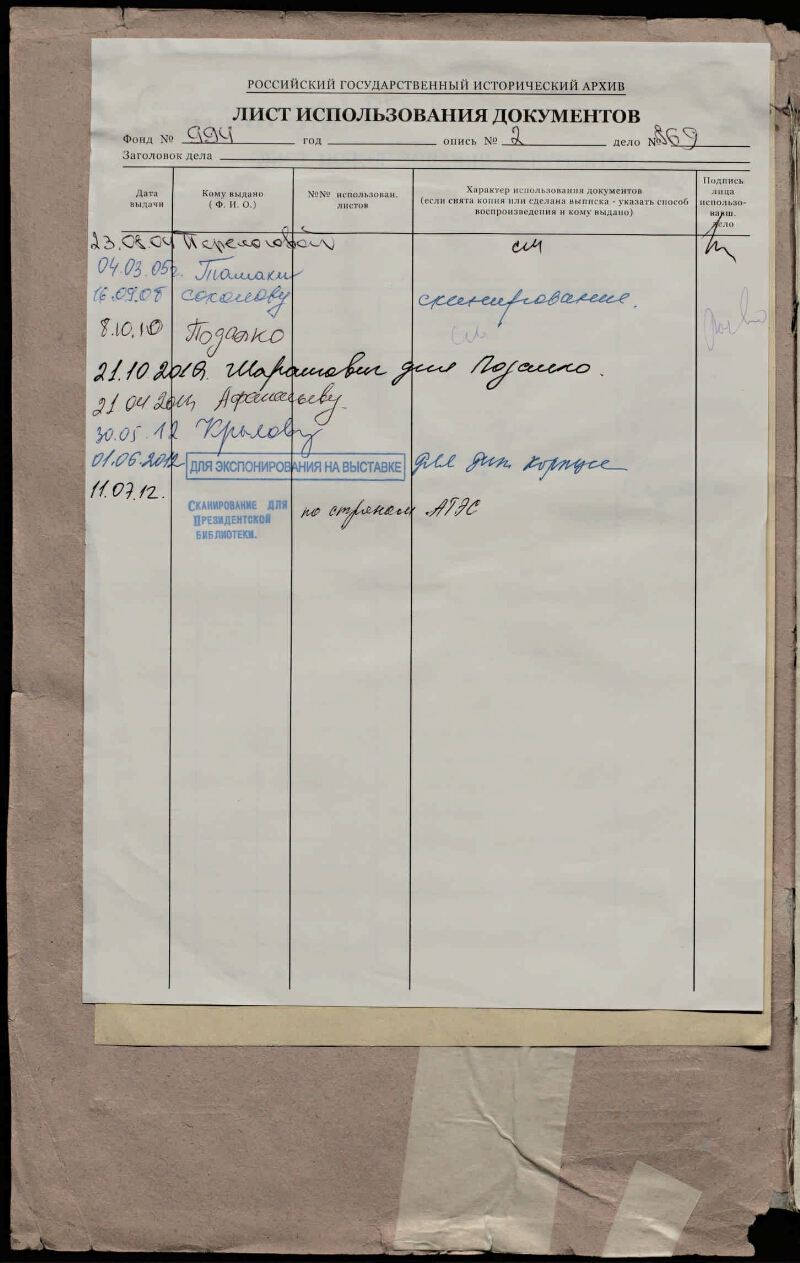 РОССИЙСКИЙ ГОСУДАРСТВЕННЫЙ ИСТОРИЧЕСКИЙ АРХИВ
ЛИСТ ИСПОЛЬЗОВАНИЯ ДОКУМЕНТОВ
Фонд № 994 год опись № 2 дело № 869
Заголовок дела
Дата выдачи
Кому выдано ( Ф. И. О.)
№№ использован. листов
Характер использования документов (если снята копия или сделана выписка - указать способ воспроизведения и кому выдано)
Подпись лица использо-вавш. дело
23.08.04 см
04.03.05г. Тамаки
16.09.08 Соколову сканирование.
8.10.10 Подалко см
21.10.2010. для Подалко.
21 04 2011 Афанасьеву.
30.05.12 Крылову
01.06.2012 ДЛЯ ЭКСПОНИРОВАНИЯ НА ВЫСТАВКЕ для дип. корпуса
11.07.12. СКАНИРОВАНИЕ ДЛЯ ПРЕЗИДЕНТСКОЙ БИБЛИОТЕКИ. по странам АТЭС